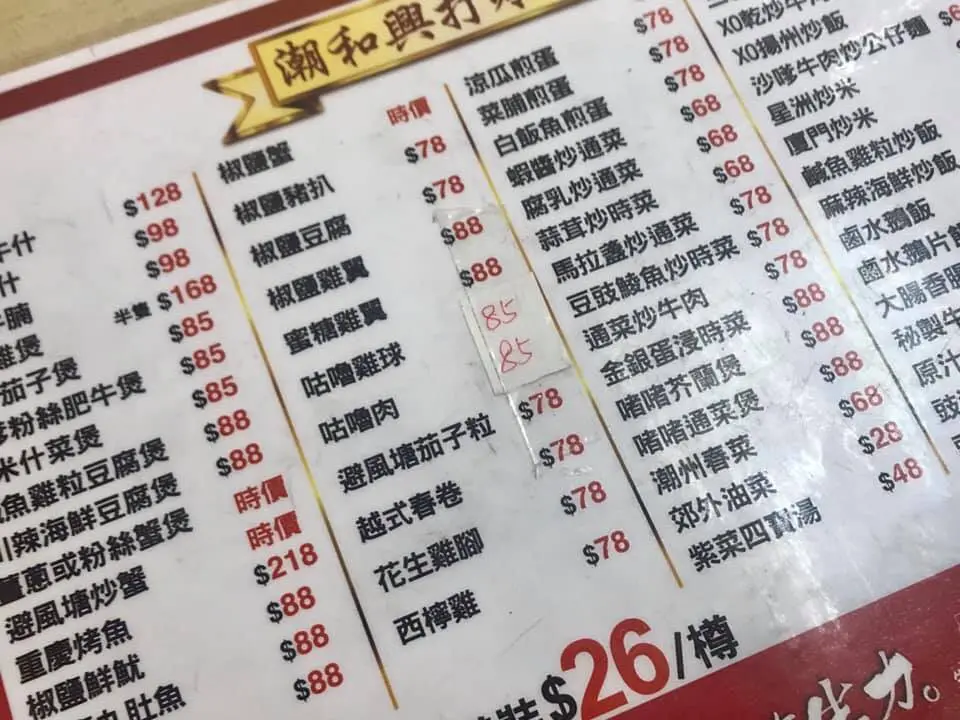 潮和興打
牛什 $128
什 $98
腩 $98
雞煲 半隻 $168
茄子煲 $85
粉絲肥牛煲 $85
米什菜煲 $85
魚雞粒豆腐煲 $88
辣海鮮豆腐煲 $88
薑蔥或粉絲蟹煲 時價
避風塘炒蟹 時價
重慶烤魚 $218
椒鹽鮮魷 $88
肚魚 $88
$88
椒鹽蟹 時價
椒鹽豬扒 $78
椒鹽豆腐 $78
椒鹽雞翼 $88
蜜糖雞翼 $88
咕嚕雞球 85
咕嚕肉 85
避風塘茄子粒 $78
越式春卷 $78
花生雞腳 $78
西檸雞 $78
涼瓜煎蛋 $78
菜脯煎蛋 $78
白飯魚煎蛋 $78
蝦醬炒通菜 $68
腐乳炒通菜 $68
蒜茸炒時菜 $68
馬拉盞炒通菜 $78
豆豉鯪魚炒時菜 $78
通菜炒牛肉 $78
金銀蛋浸時菜 $88
啫啫芥蘭煲 $88
啫啫通菜煲 $88
潮州春菜 $68
郊外油菜 $28
紫菜四寶湯 $48
XO乾炒牛
XO揚州炒飯
沙嗲牛肉炒公仔麵
星洲炒米
廈門炒米
鹹魚雞粒炒飯
麻辣海鮮炒飯
鹵水鵝飯
鹵水鵝片飯
大腸香腸
秘製牛
原汁
豉
裝$26/樽
力。